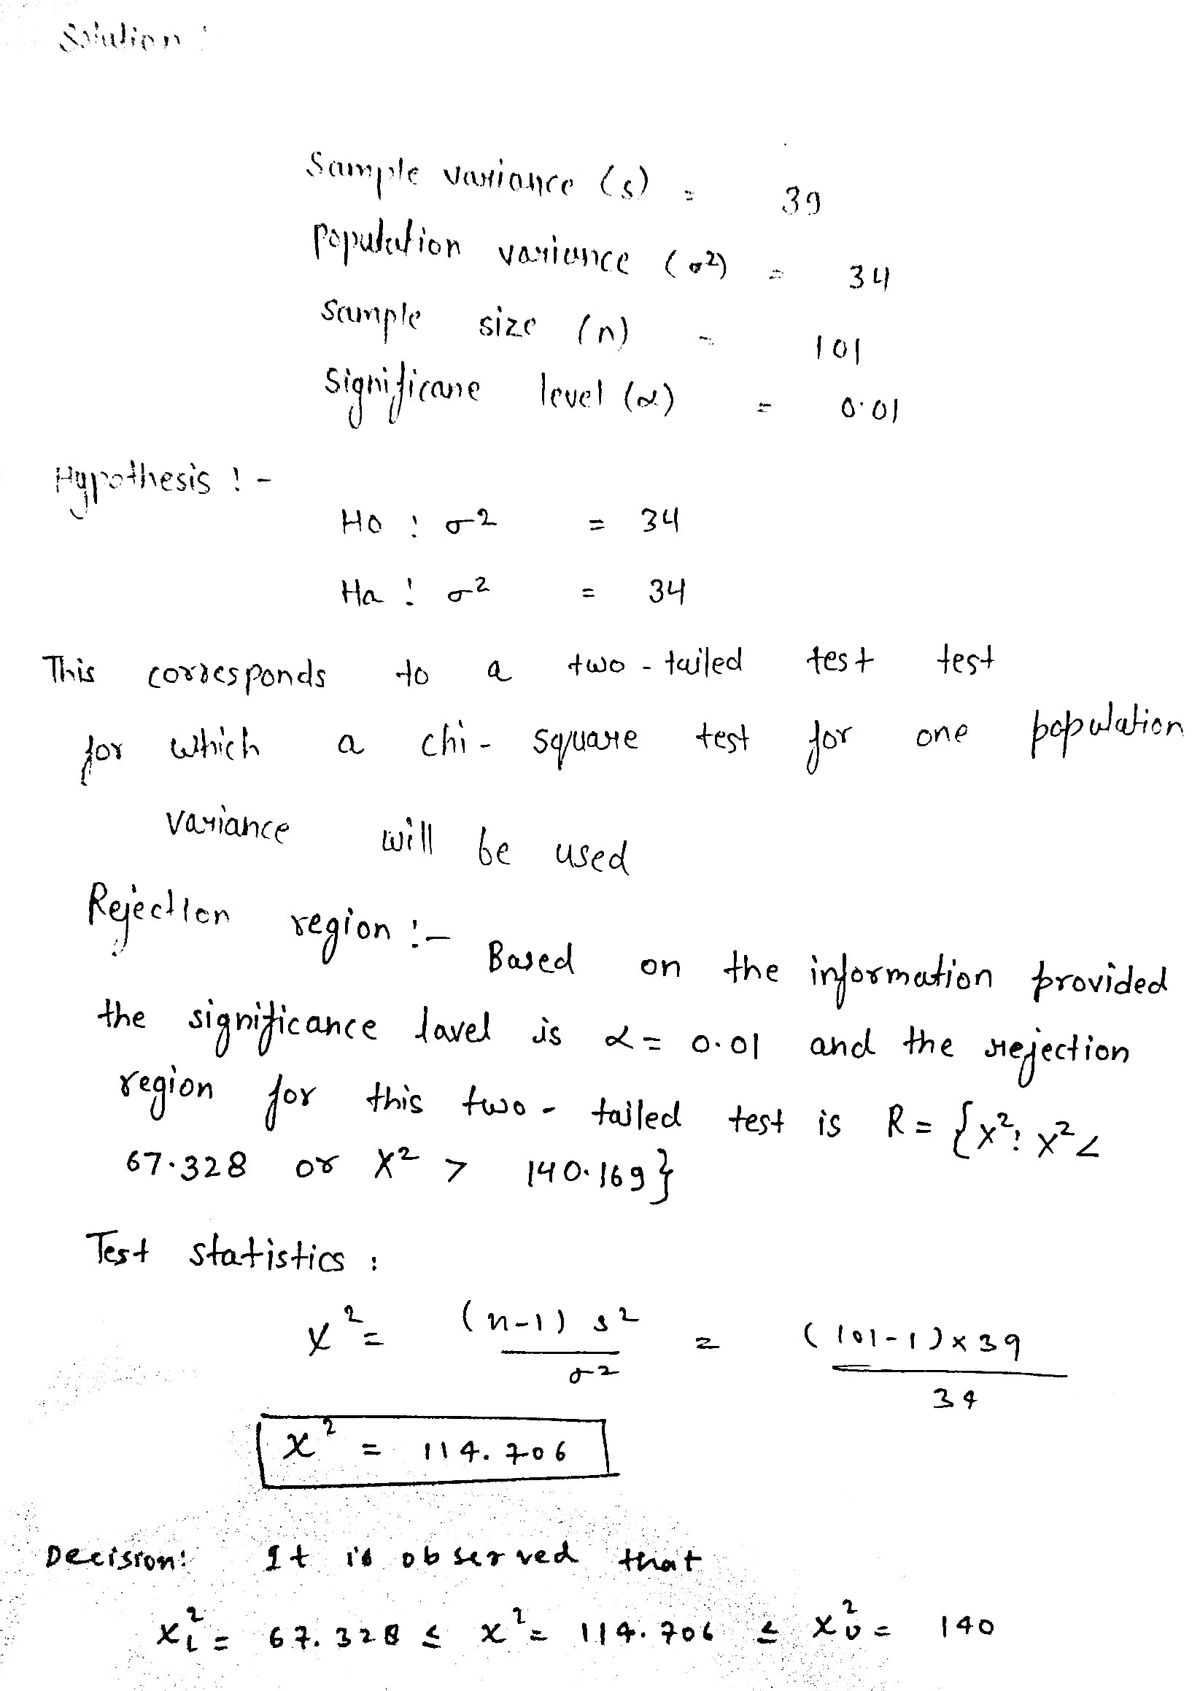 Solution :
Sample variance (s) = 39
Population variance (σ2) = 34
Sample size (n) = 101
Significane level (α) = 0.01
Hypothesis : -
Ho : σ2 = 34
Ha : σ2 = 34
This corresponds to a two - tailed test test
for which a chi - square test for one population
variance will be used
Rejection region :- Based on the information provided
the significance lavel is α = 0.01 and the rejection
region for this two - tailed test is R = {x²: x² <
67.328 or X² > 140.169}
Test statistics :
χ² = (n-1) s² / σ2 = (101-1) × 39 / 34
x² = 114.706
Decision: It is observed that
x²L = 67.328 ≤ x² = 114.706 ≤ x²U = 140